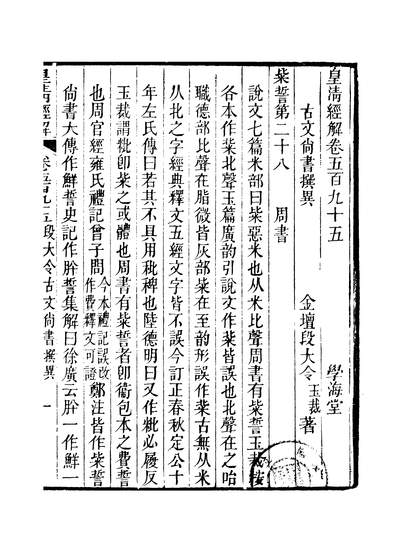 皇清經解卷五百九十五　學海堂
古文尚書撰異　金壇段大令玉裁著
柴誓第二十八　周書
說文七篇米部曰柴惡米也从米比聲周書有柴誓玉裁按
各本作柴北聲玉篇廣韵引說文作柴皆誤也北聲在之咍
職德部比聲在脂微皆灰部柴在至韵形誤作枈古無从米
从北之字經典釋文五經文字皆不誤今訂正春秋定公十
年左氏傳曰若其不具用秕稗也陸德明曰又作粃必履反
玉裁謂秕卽柴之或體也周書有柴誓者卽衞包本之費誓
也周官經雍氏禮記曾子問今本禮記誤改作費釋文可證鄭注皆作柴誓
尙書大傳作鮮誓史記作肸誓集解曰徐廣云肸一作鮮一
皇清經解　卷五百九十五段大令古文尚書撰異　一